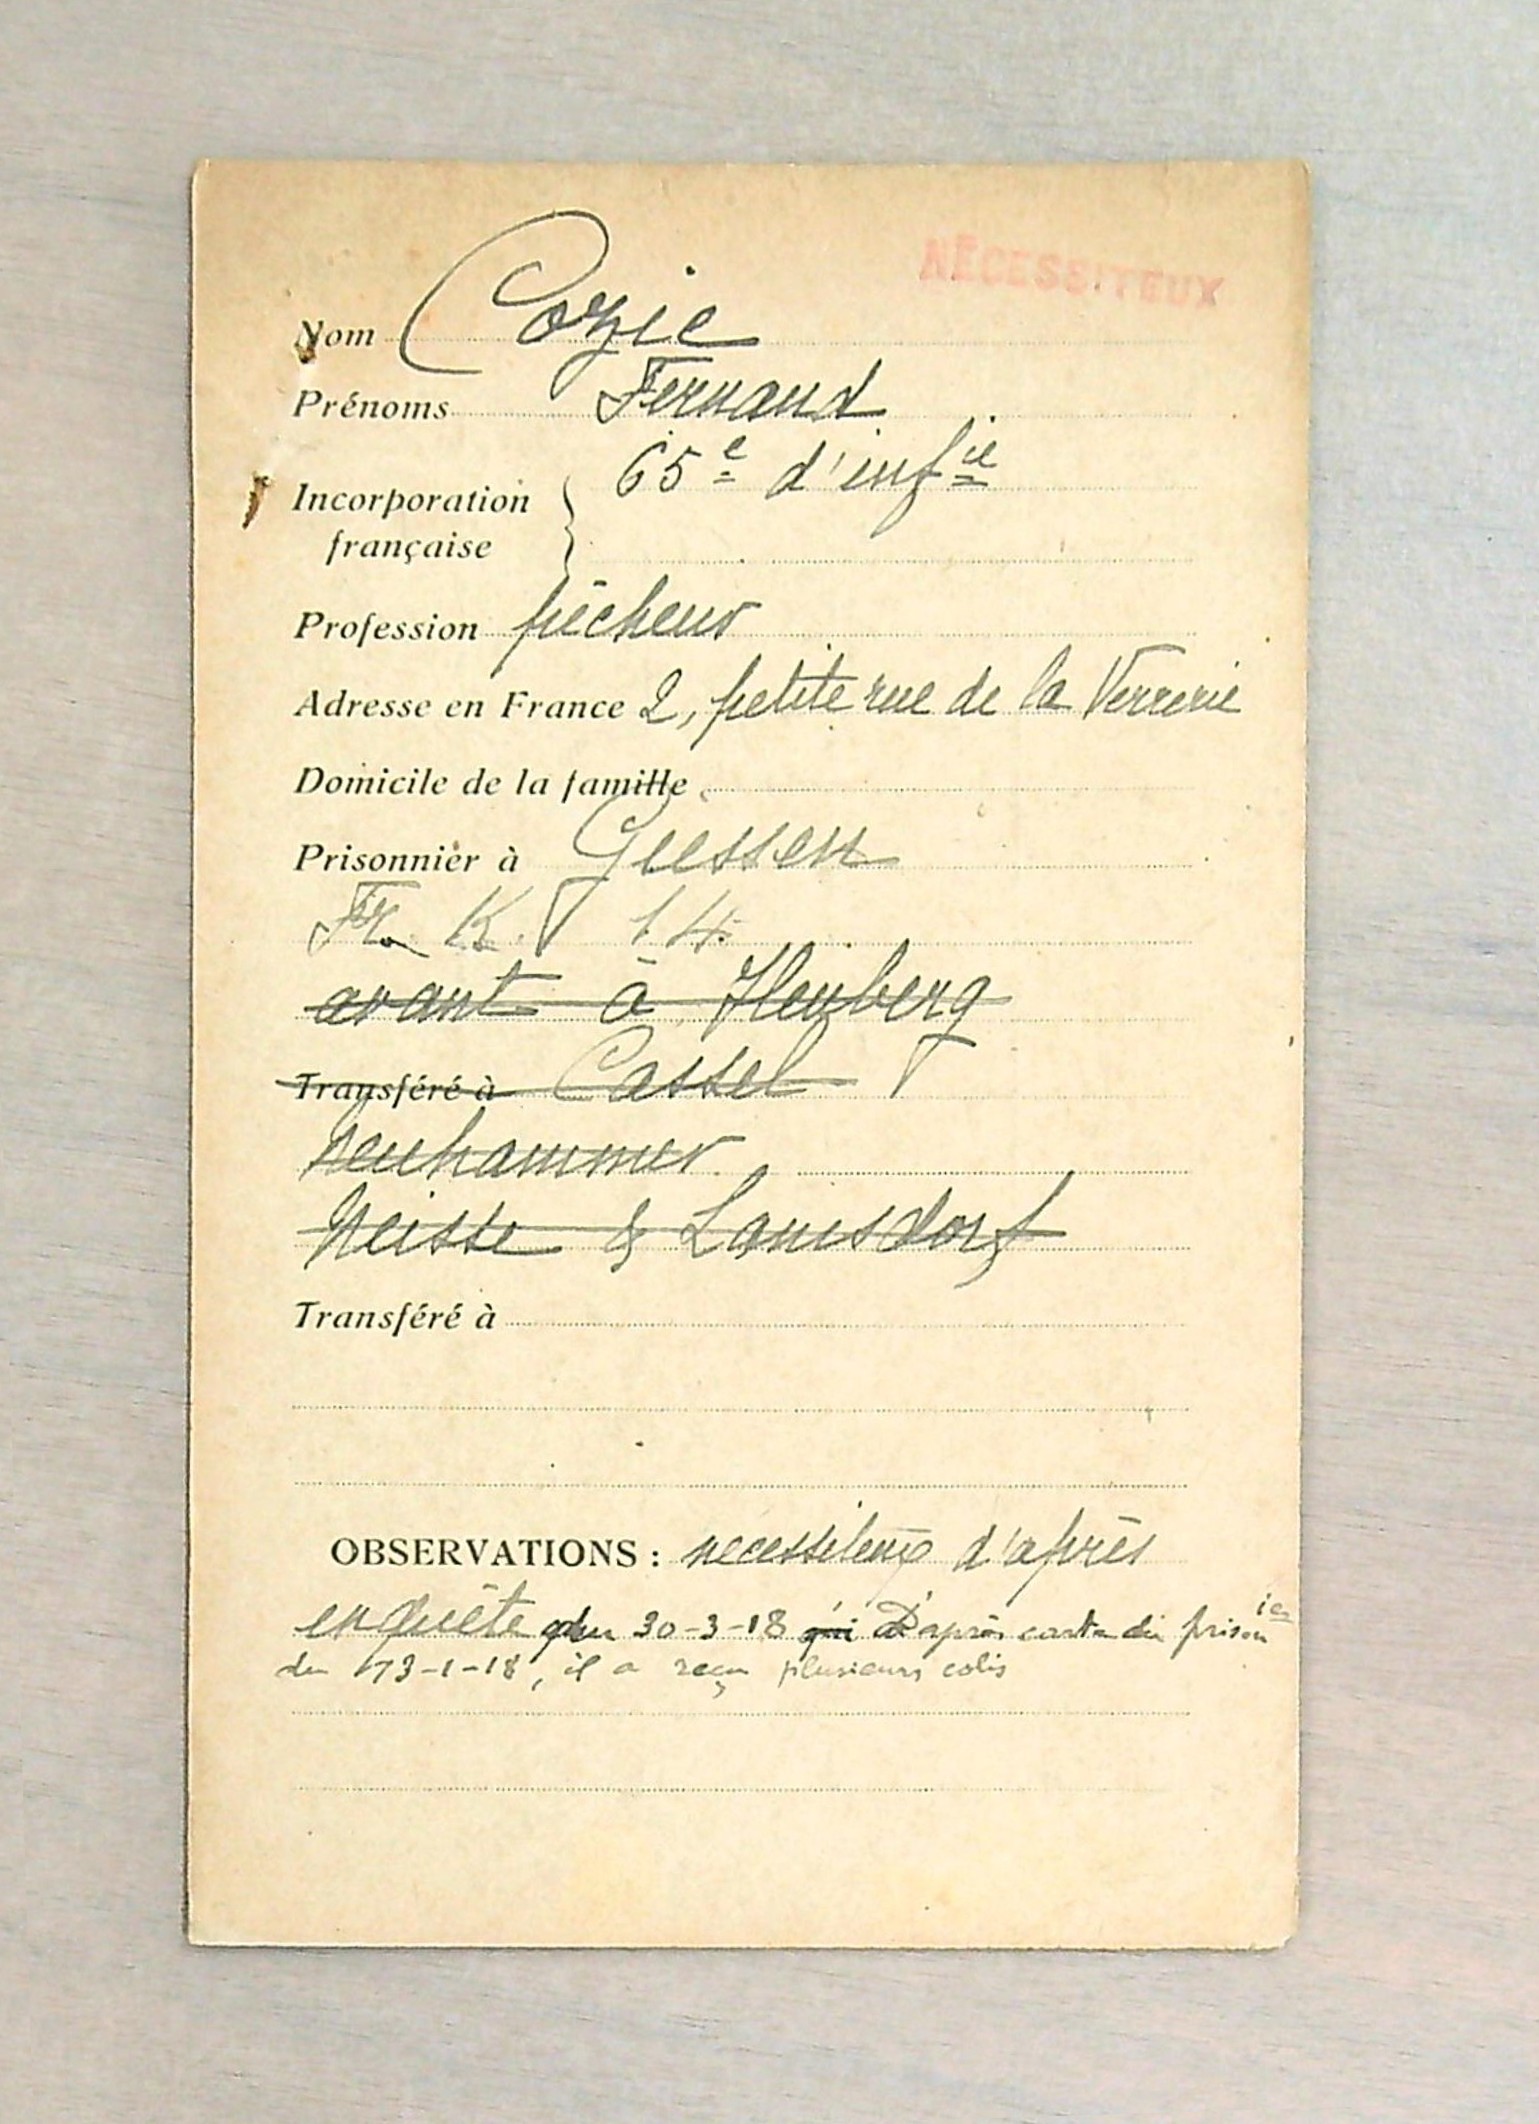 NÉCESSITEUX
Nom Cozic
Prénoms Fernand
65e d'infie
Incorporation
française
Profession pêcheur
Adresse en France 2, petite rue de la Verrerie
Domicile de la famille
Prisonnier à Giessen
Fr. K. 14
avant à Heuberg
Transféré à Cassel
Neuhammer
Neisse & Lamsdorf
Transféré à
OBSERVATIONS : nécessiteux d'après
enquête du 30-3-18 qui D'après carte du prisonier
du 13-1-18, il a reçu plusieurs colis